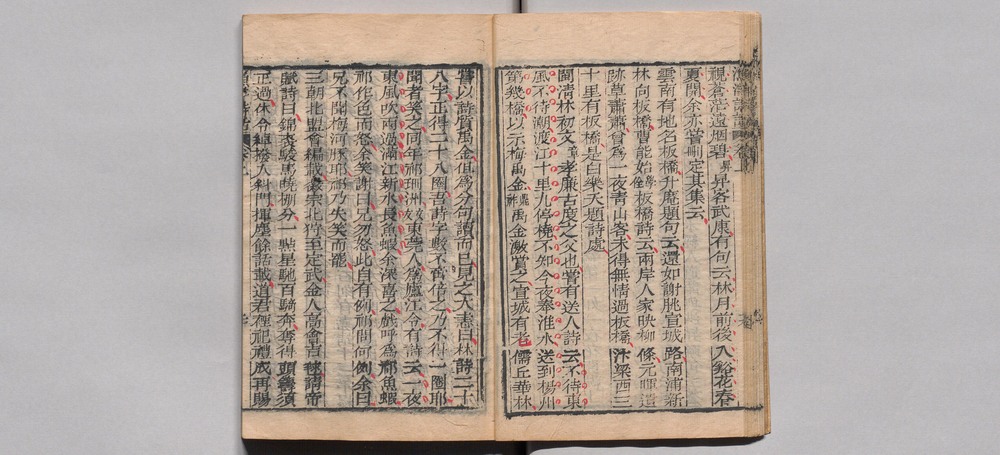 視蒼茫遠烟碧昇昇客武康有句云林月前後入谿花春
夏開余亦嘗刪定其集云
雲南有地名板橋升庵題句云還如謝朓宣城路南浦新
林向板橋曹能始學佺板橋詩云兩岸人家映柳條元暉遺
跡草蕭蕭曾爲一夜青山客未得無情過板橋汴梁西三
十里有板橋是白樂天題詩處
閩清林初文孝廉古度之父也嘗有送人詩云不待東
風不待潮渡江十里九停橈不知今夜秦淮水送到楊州
第幾橋以示梅禹金鼎祚禹金激賞之宣城有老儒丘華林
嘗以詩質禹金但爲分句讀而已見之大恚曰林詩二十
八字正得二十八圈吾詩字數不啻倍之乃不得一圈耶
聞者笑之同年祁珊洲文友東莞人爲廬江令有詩云一夜
東風吹雨過滿江新水長魚蝦余深喜之戲呼爲祁魚蝦
祁作色而怒余笑謝曰兄勿怒此自有例祁問何例余曰
兄不聞梅河豚耶祁乃失笑而罷
三朝北盟會編載徽宗北狩至定武金人高會言 請帝
賦詩曰錦裘駿馬曉棚分一點星馳百騎奔奪得頭籌須
正過休令綽撥入斜門揮麈餘話載道君禋祀禮成再賜